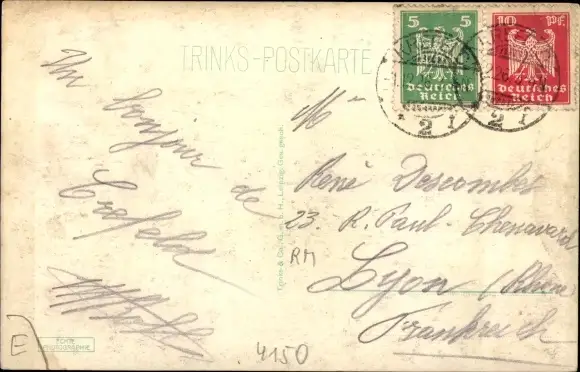 TRINKS-POSTKARTE
5 5
Deutsches
Reich
10 Pf.
Deutsches
Reich
2 1
2 1
Un bonjour
de
Crefeld
Mr
René Descombes
23. R. Paul-Chenavard
RM
Lyon (Rhône)
Frankreich
Trinks & Co., G. m. b. H., Leipzig
ECHTE
PHOTOGRAPHIE
E
4150